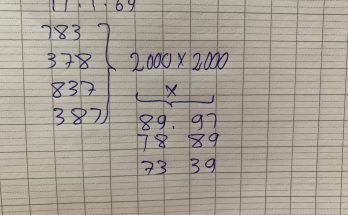 17.1.69
783
378 2000 x 2000
837 x
387 89. 97
78 89
73 39